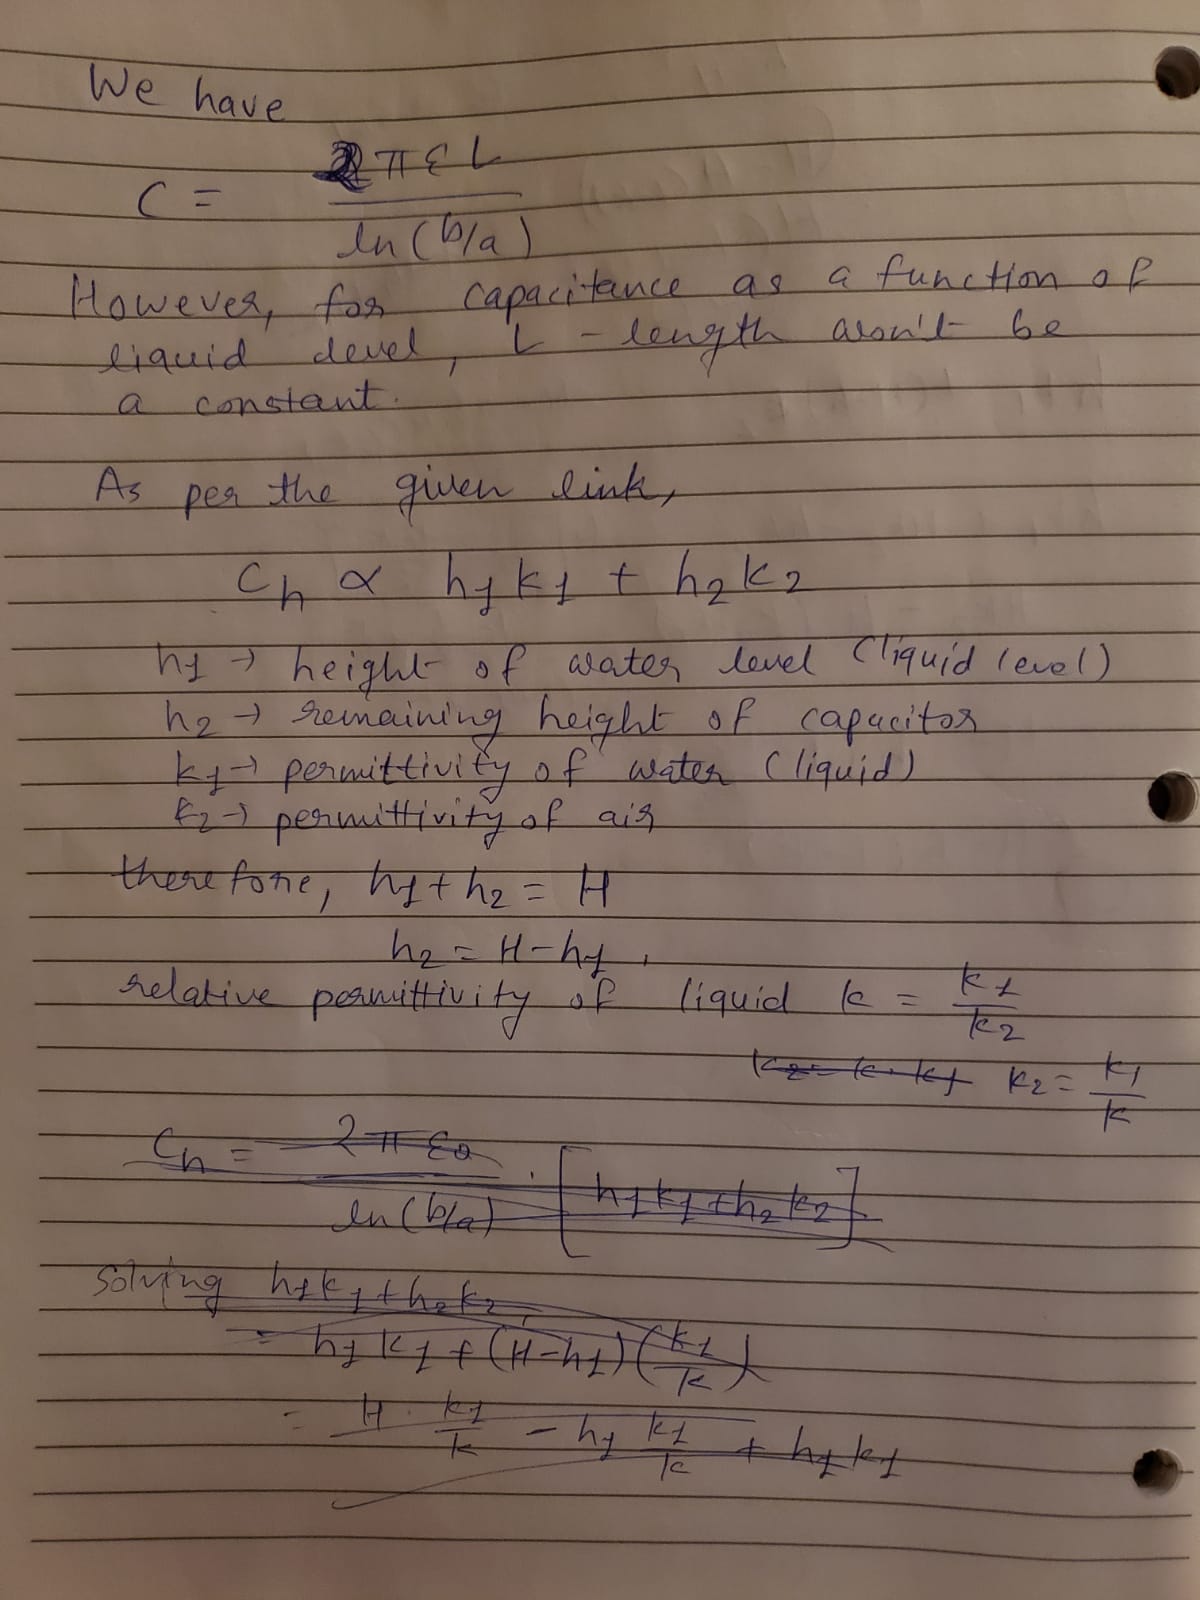 We have
C = 2πεL / ln(b/a)
However, for capacitance as a function of
liquid level, L - length won't be
a constant.
As per the given link,
Ch ∝ h1k1 + h2k2
h1 → height of water level (liquid level)
h2 → remaining height of capacitor
k1 → permittivity of water (liquid)
k2 → permittivity of air
therefore, h1 + h2 = H
h2 = H - h1
relative permittivity of liquid k = k1/k2
k2 = k · k1 k2 = k1/k
Ch = 2πε0 / ln(b/a) · [h1k1 + h2k2]
solving h1k1 + h2k2
= h1k1 + (H-h1)(k1/k)
= H · k1/k - h1 k1/k + h1k1